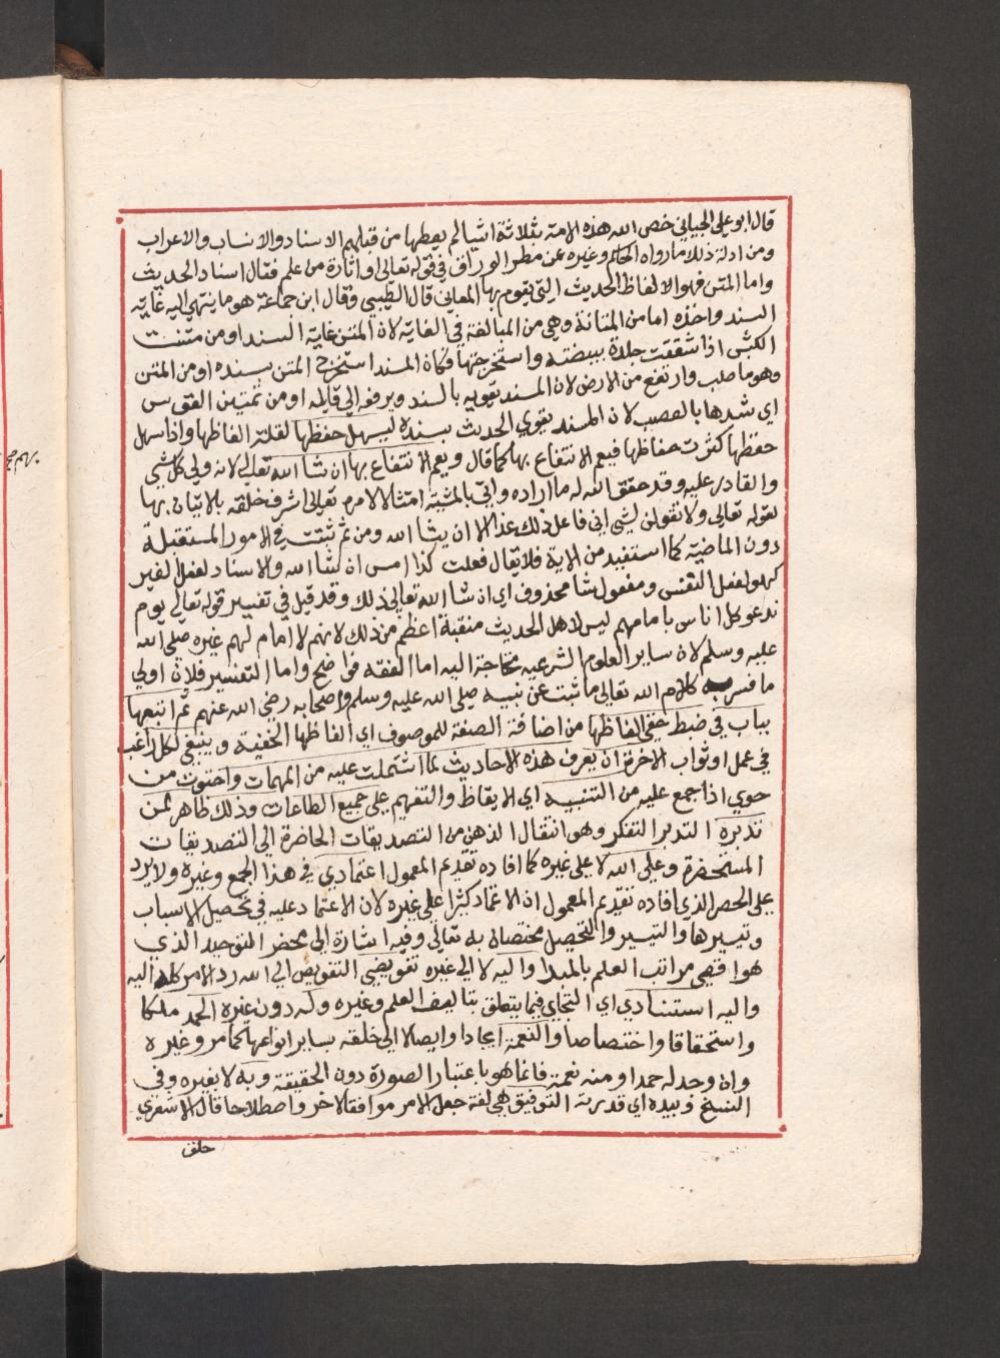 قال ابو علي الجياني خص الله هذه الامة بثلاثة اشيا لم يعطها من قبلهم الاسناد والانساب والاعراب
ومن ادلة ذلك ما رواه الحاكم وغيره عن مطر الوراق في قوله تعالى او اثارة من علم فقال اسناد الحديث
واما المتن فهو الالفاظ الحديث التي يقوم بها المعاني قال الطيبي وقال ابن جماعة هو ما ينتهي اليه غاية
السند واخذه اما من المتانة وهي من المبالغة في الغاية لان المتن غاية السند او من متنت
الكبش اذا شققت جلدة بيضته واستخرجتها فكان المسند استخرج المتن بسنده او من المتن
وهو ما صلب وارتفع من الارض لان المسند يقويه بالسند ويرفعه الى قايله او من تمتين القوس
اي شدها بالعصب لان المسند يقوي الحديث بسنده ليسهل حفظها لقلة الفاظها واذا سهل
حفظها كثرت حفاظها فيعم الانتفاع بها كما قال ويعم الانتفاع بها ان شا الله تعالى لانه ولي كل شي
والقادر عليه وقد حقق الله له ما اراده واتى بالمشية امتثالا لامره تعالى اشرف خلقه بالاتيان بها
لقوله تعالى ولا تقولن لشي اني فاعل ذلك غدا الا ان يشا الله ومن ثم ثبتت في الامور المستقبلة
دون الماضية كما استفيد من الاية فلا يقال فعلت كذا امس ان شا الله والاسناد لفعل الغير
كهو لفعل النفس ومفعول شا محذوف اي ان شا الله تعالى ذلك وقد قيل في تفسير قوله تعالى يوم
ندعو كل اناس بامامهم ليس لاهل الحديث منقبة اعظم من ذلك لانهم لا امام لهم غيره صلى الله
عليه وسلم لان ساير العلوم الشرعيه محتاجة اليه اما الفقه فواضح واما التفسير فلان اولى
ما فسر به كلام الله تعالى ما ثبت عن نبيه صلى الله عليه وسلم واصحابه رضي الله عنهم ثم اتبعها
بباب في ضبط خفي الفاظها من اضافة الصفة للموصوف اي الفاظها الخفية وينبغي لكل راغب
في عمل او ثواب الاخرة ان يعرف هذه الاحاديث لما اشتملت عليه من المهمات واحتوت من
حوي اذا جمع عليه من التنبيه اي الايقاظ والتفهيم على جميع الطاعات وذلك ظاهر لمن
تدبره التدبر التفكر وهو انتقال الذهن من التصديقات الحاضرة الى التصديقات
المستحضرة وعلى الله لا على غيره كما افاده تقديم المعمول اعتمادي في هذا الجمع وغيره ولا يرد
على الحصر الذي افاده تقديم المعمول ان الاعتماد كثيرا على غيره لان الاعتماد عليه في تحصيل الاسباب
وتيسيرها والتيسير والتحصيل مختصان به تعالى وفيه اشارة الى محض التوحيد الذي
هو اقصى مراتب العلم بالمبدا واليه لا الى غيره تفويضي التفويض الى الله رد الامر كله اليه
واليه استنادي اي التجاي فيما يتعلق بتاليف العلم وغيره وله دون غيره الحمد ملكا
واستحقاقا واختصاصا والنعمة ايجادا وايصالا الى خلقه بساير انواعها كما مر وغيره
وان وجد له حمد او منه نعمة فانما هو باعتبار الصورة دون الحقيقة وبه لا بغيره وفي
النسخ وبيده اي قدرته التوفيق هي لغة جعل الامر موافقا لاخر واصطلاحا قال الاشعري
خلق